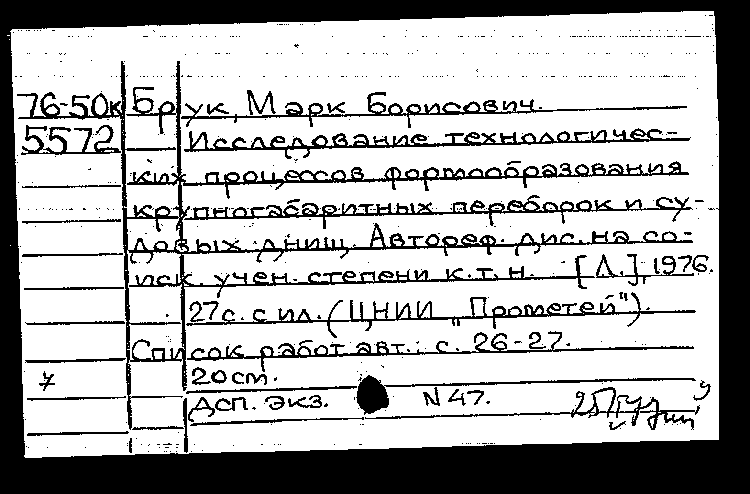 76-50к Брук, Марк Борисович.
5572 Исследование технологичес-
ких процессов формообразования
крупногабаритных переборок и су-
довых днищ. Автореф. дис. на со-
иск. учен. степени к.т.н. [Л.], 1976.
27с. с ил. (ЦНИИ „Прометей").
Список работ авт.: с. 26-27.
20см.
Дсп. экз. N 47.